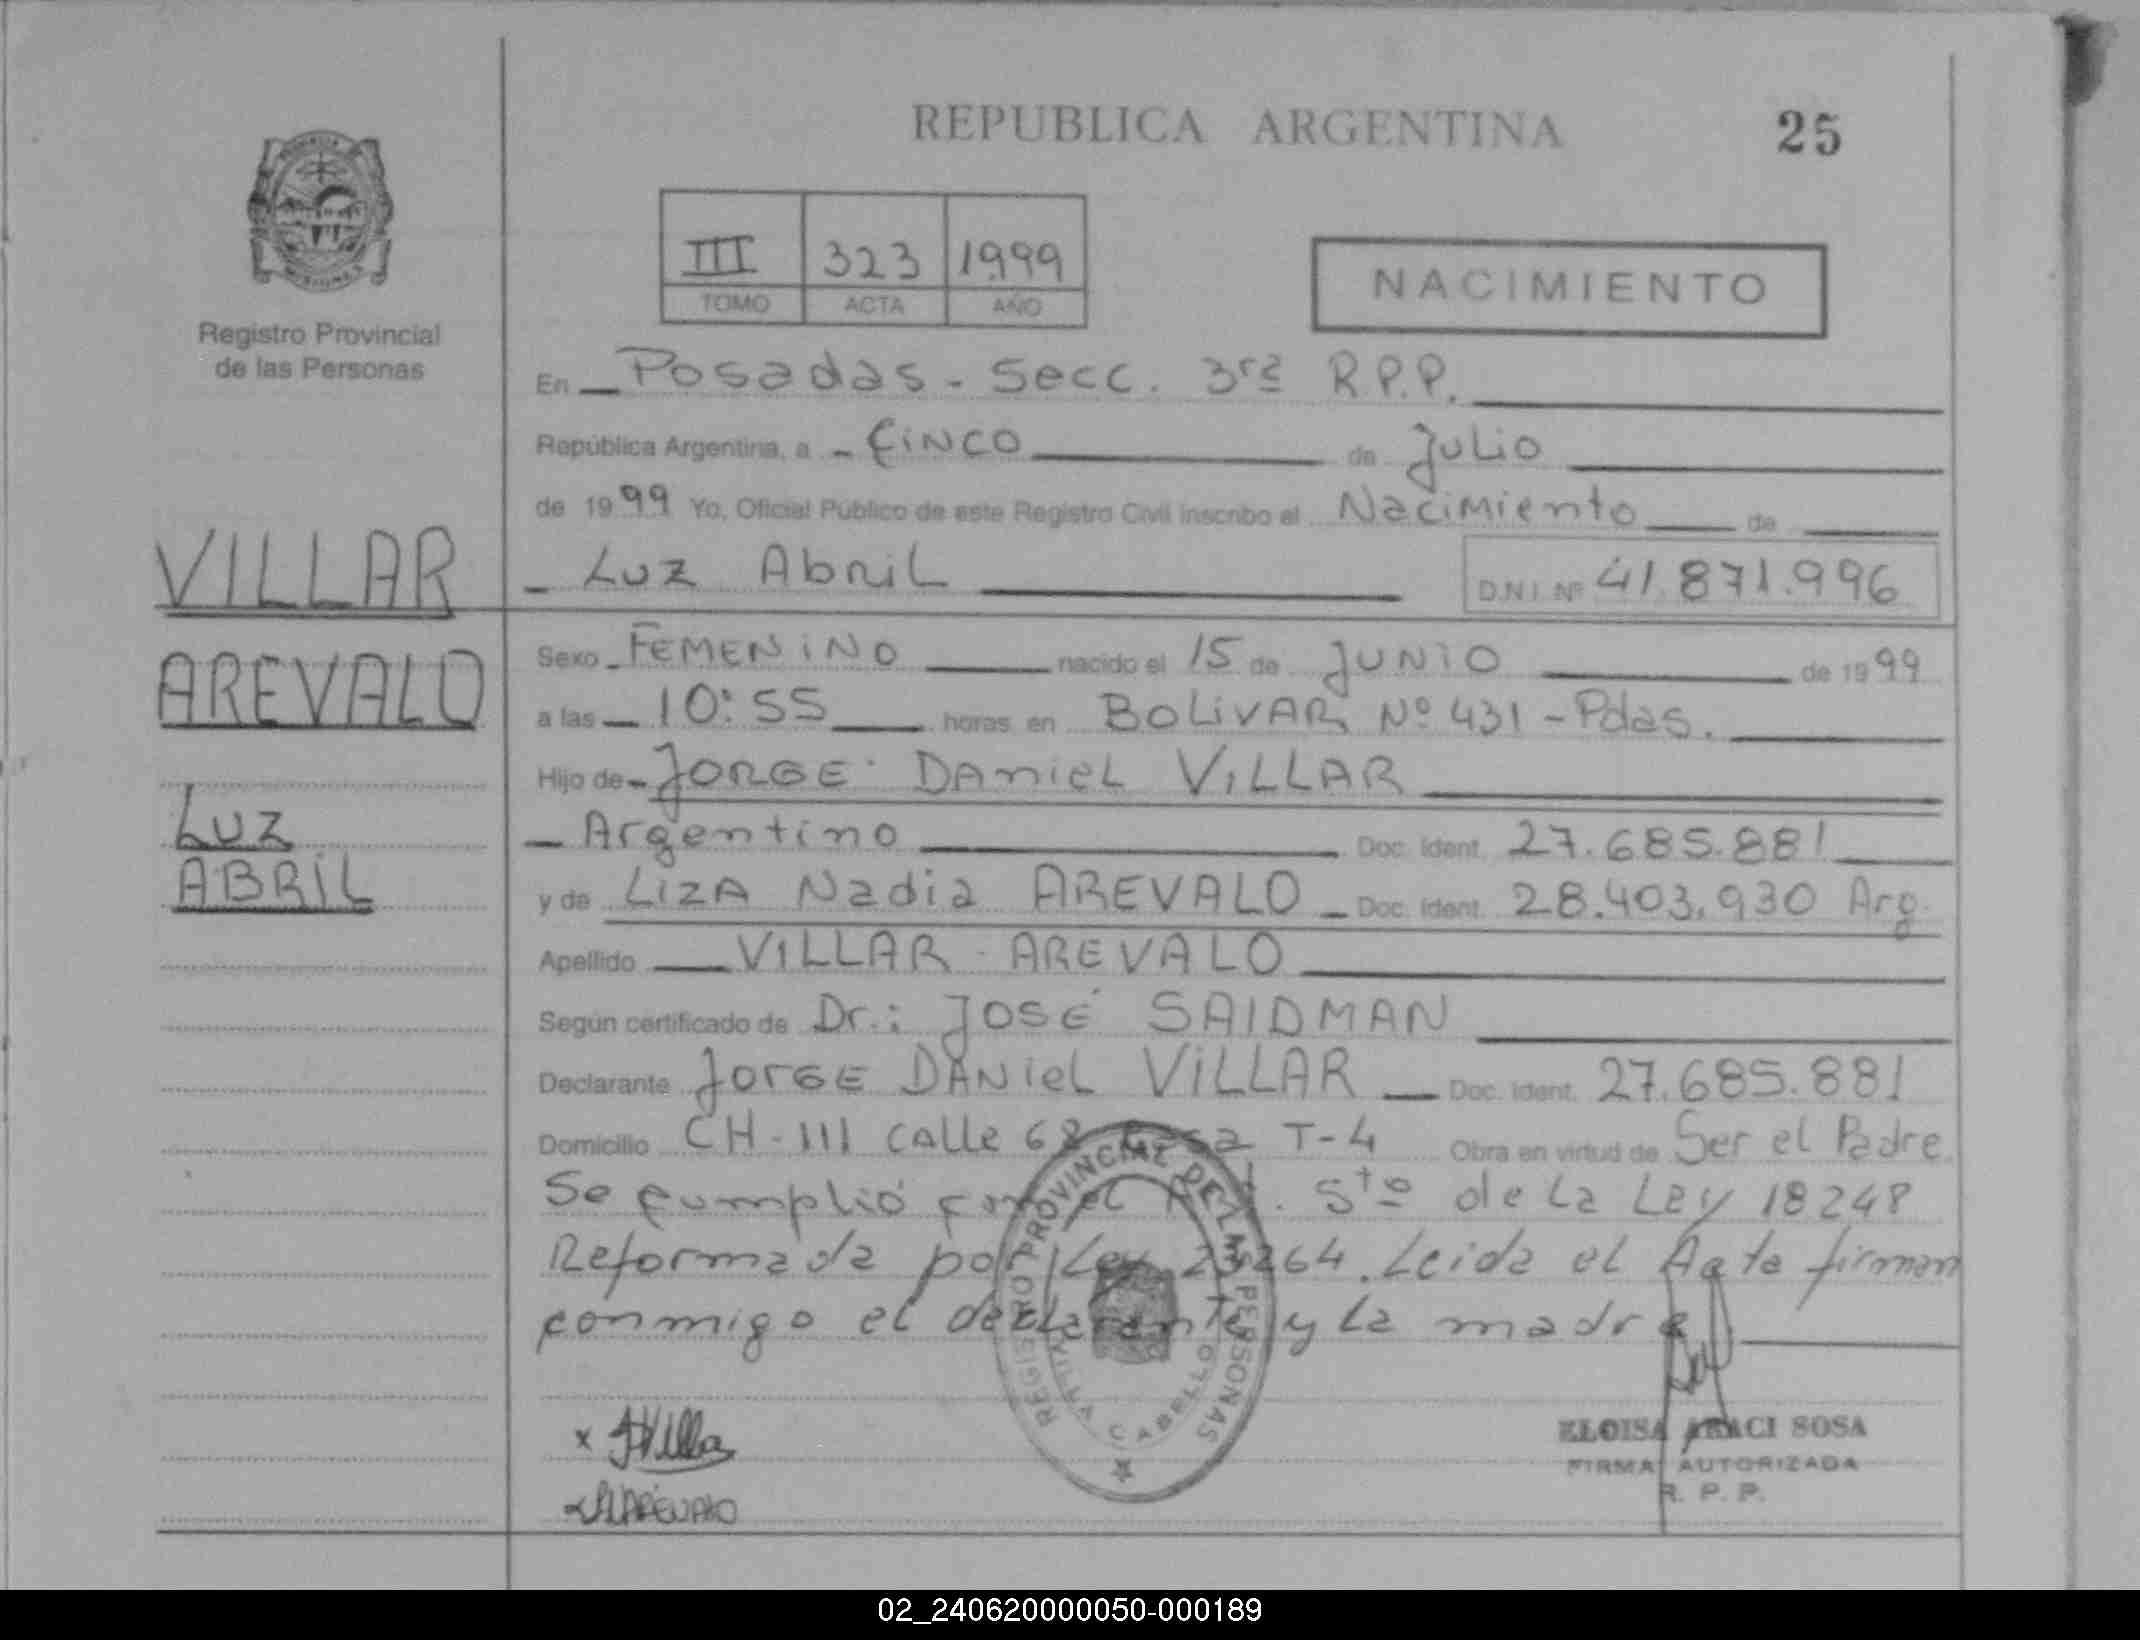 REPUBLICA ARGENTINA 25
III 323 1999
TOMO ACTA AÑO
NACIMIENTO
Registro Provincial
de las Personas
VILLAR
AREVALO
LUZ
ABRIL
En Posadas - Secc. 3ra R.P.P.
República Argentina, a - Cinco de Julio
de 1999 Yo, Oficial Público de este Registro Civil inscribo el Nacimiento de
- Luz Abril D.N.I. Nº 41.871.996
Sexo - FEMENiNO nacido el 15 de JUNiO de 1999
a las 10:55 horas en BOLiVAR Nº 431 - Pdas.
Hijo de - JORGE DANiEL ViLLAR
- Argentino Doc. Ident. 27.685.881
y de LIZA Nadia AREVALO - Doc. Ident. 28.403.930 Arg.
Apellido VILLAR - AREVALO
Según certificado de Dr.: JOSÉ SAIDMAN
Declarante JORGE DANiEL ViLLAR - Doc. Ident. 27.685.881
Domicilio CH-III CALLE 68 Casa T-4 Obra en virtud de Ser el Padre
Se cumplió con el Art. 5to de La Ley 18248
Reformada por Ley 23264. Leida el Acta firman
conmigo el declarante y La madre
REGISTRO PROVINCIAL DE LAS PERSONAS
VILLA CABELLO
x JVillar
AREVALO
ELOISA ARACI SOSA
FIRMA AUTORIZADA
R. P. P.
02_240620000050-000189